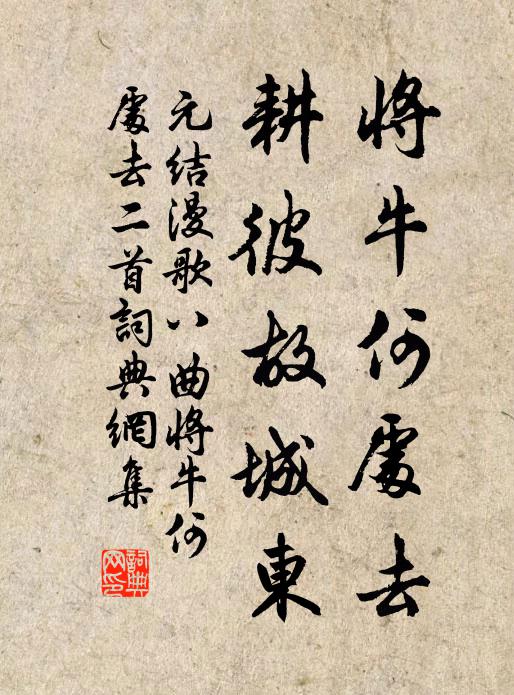 將牛何處去
耕彼故城東
元結漫歌八曲將牛何
處去二首詞典網集
詞典
网印